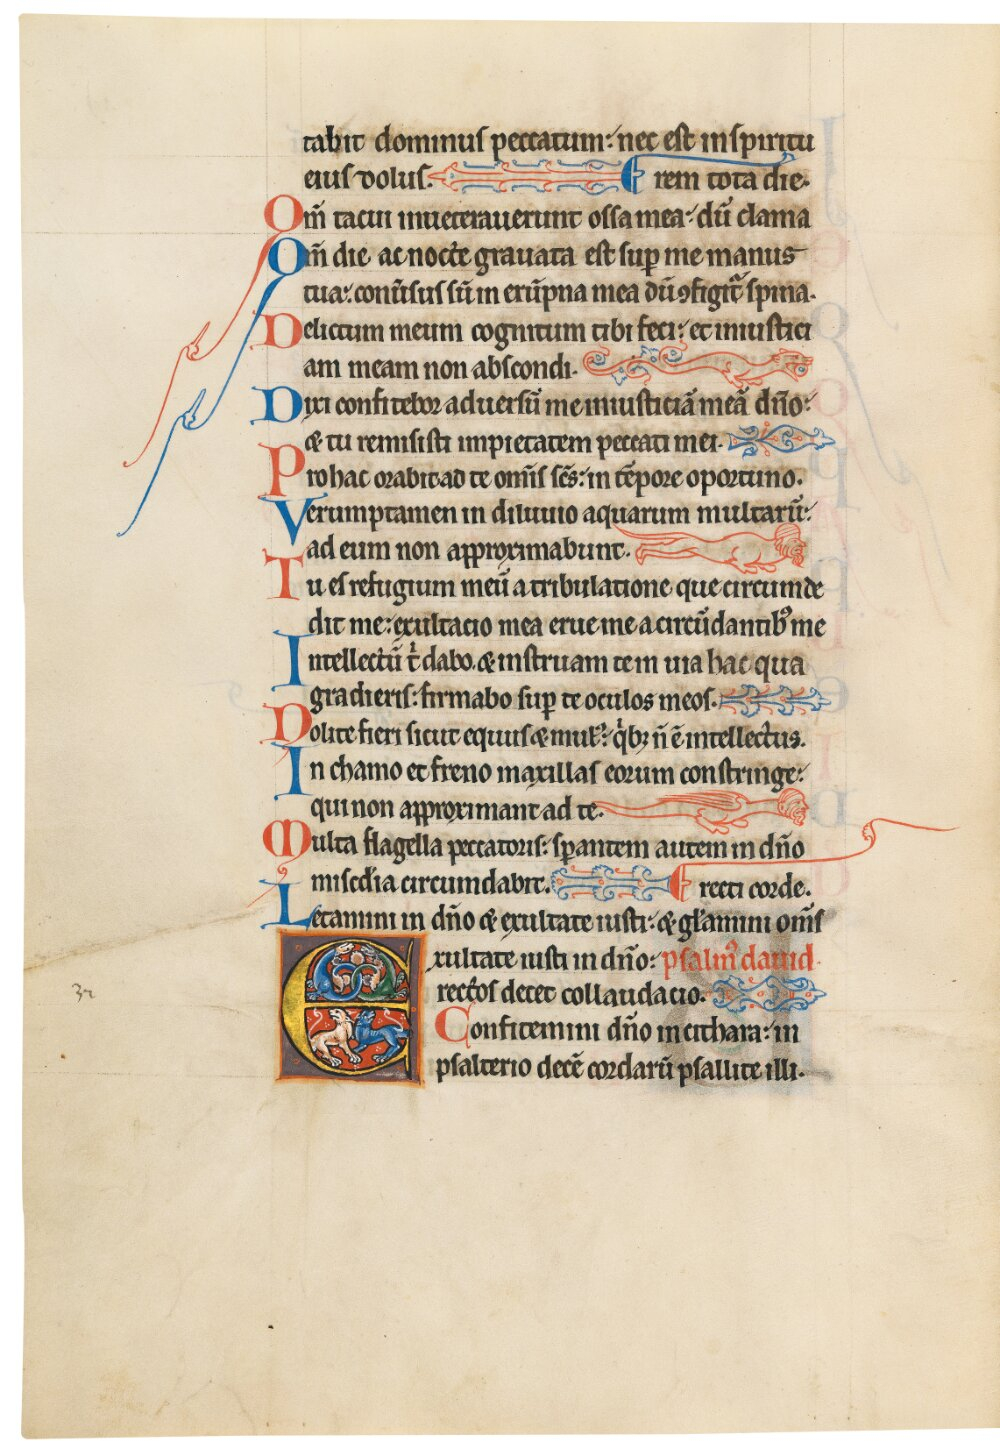 tabit dominus peccatum: nec est in spiritu
eius dolus. rem tota die.
Qm̄ tacui inueterauerunt ossa mea: dū clama
Qm̄ die ac nocte grauata est sup me manus
tua: conūsus sū in erūpna mea dū ꝯfigit᷑ spina.
Delictum meum cognitum tibi feci: et iniustici
am meam non abscondi.
Dixi confitebor aduersū me iniusticiā meā dño:
& tu remisisti impietatem peccati mei.
Pro hac orabit ad te omīs scs̄: in tēpore oportuno.
Verumptamen in diluuio aquarum multarū:
ad eum non approximabunt.
Tu es refugium meū a tribulatione que circumde
dit me: exultacio mea erue me a circūdantibꝰ me
Intellectū t̄ dabo. & instruam te in uia hac qua
gradieris: firmabo sup te oculos meos.
Nolite fieri sicut equus & mulꝰ: qͥbꝫ n̄ ē intellectus.
In chamo et freno maxillas eorum constringe:
qui non approximant ad te.
Multa flagella peccatoris: sp̄antem autem in dño
miscd̄ia circumdabit. recti corde.
Letamini in dño & exultate iusti: & gl̄amini om̄s
Exultate iusti in dño: psalmꝰ dauid.
rectos decet collaudacio.
Confitemini dño in cithara: in
psalterio decē cordarū psallite illi.
32